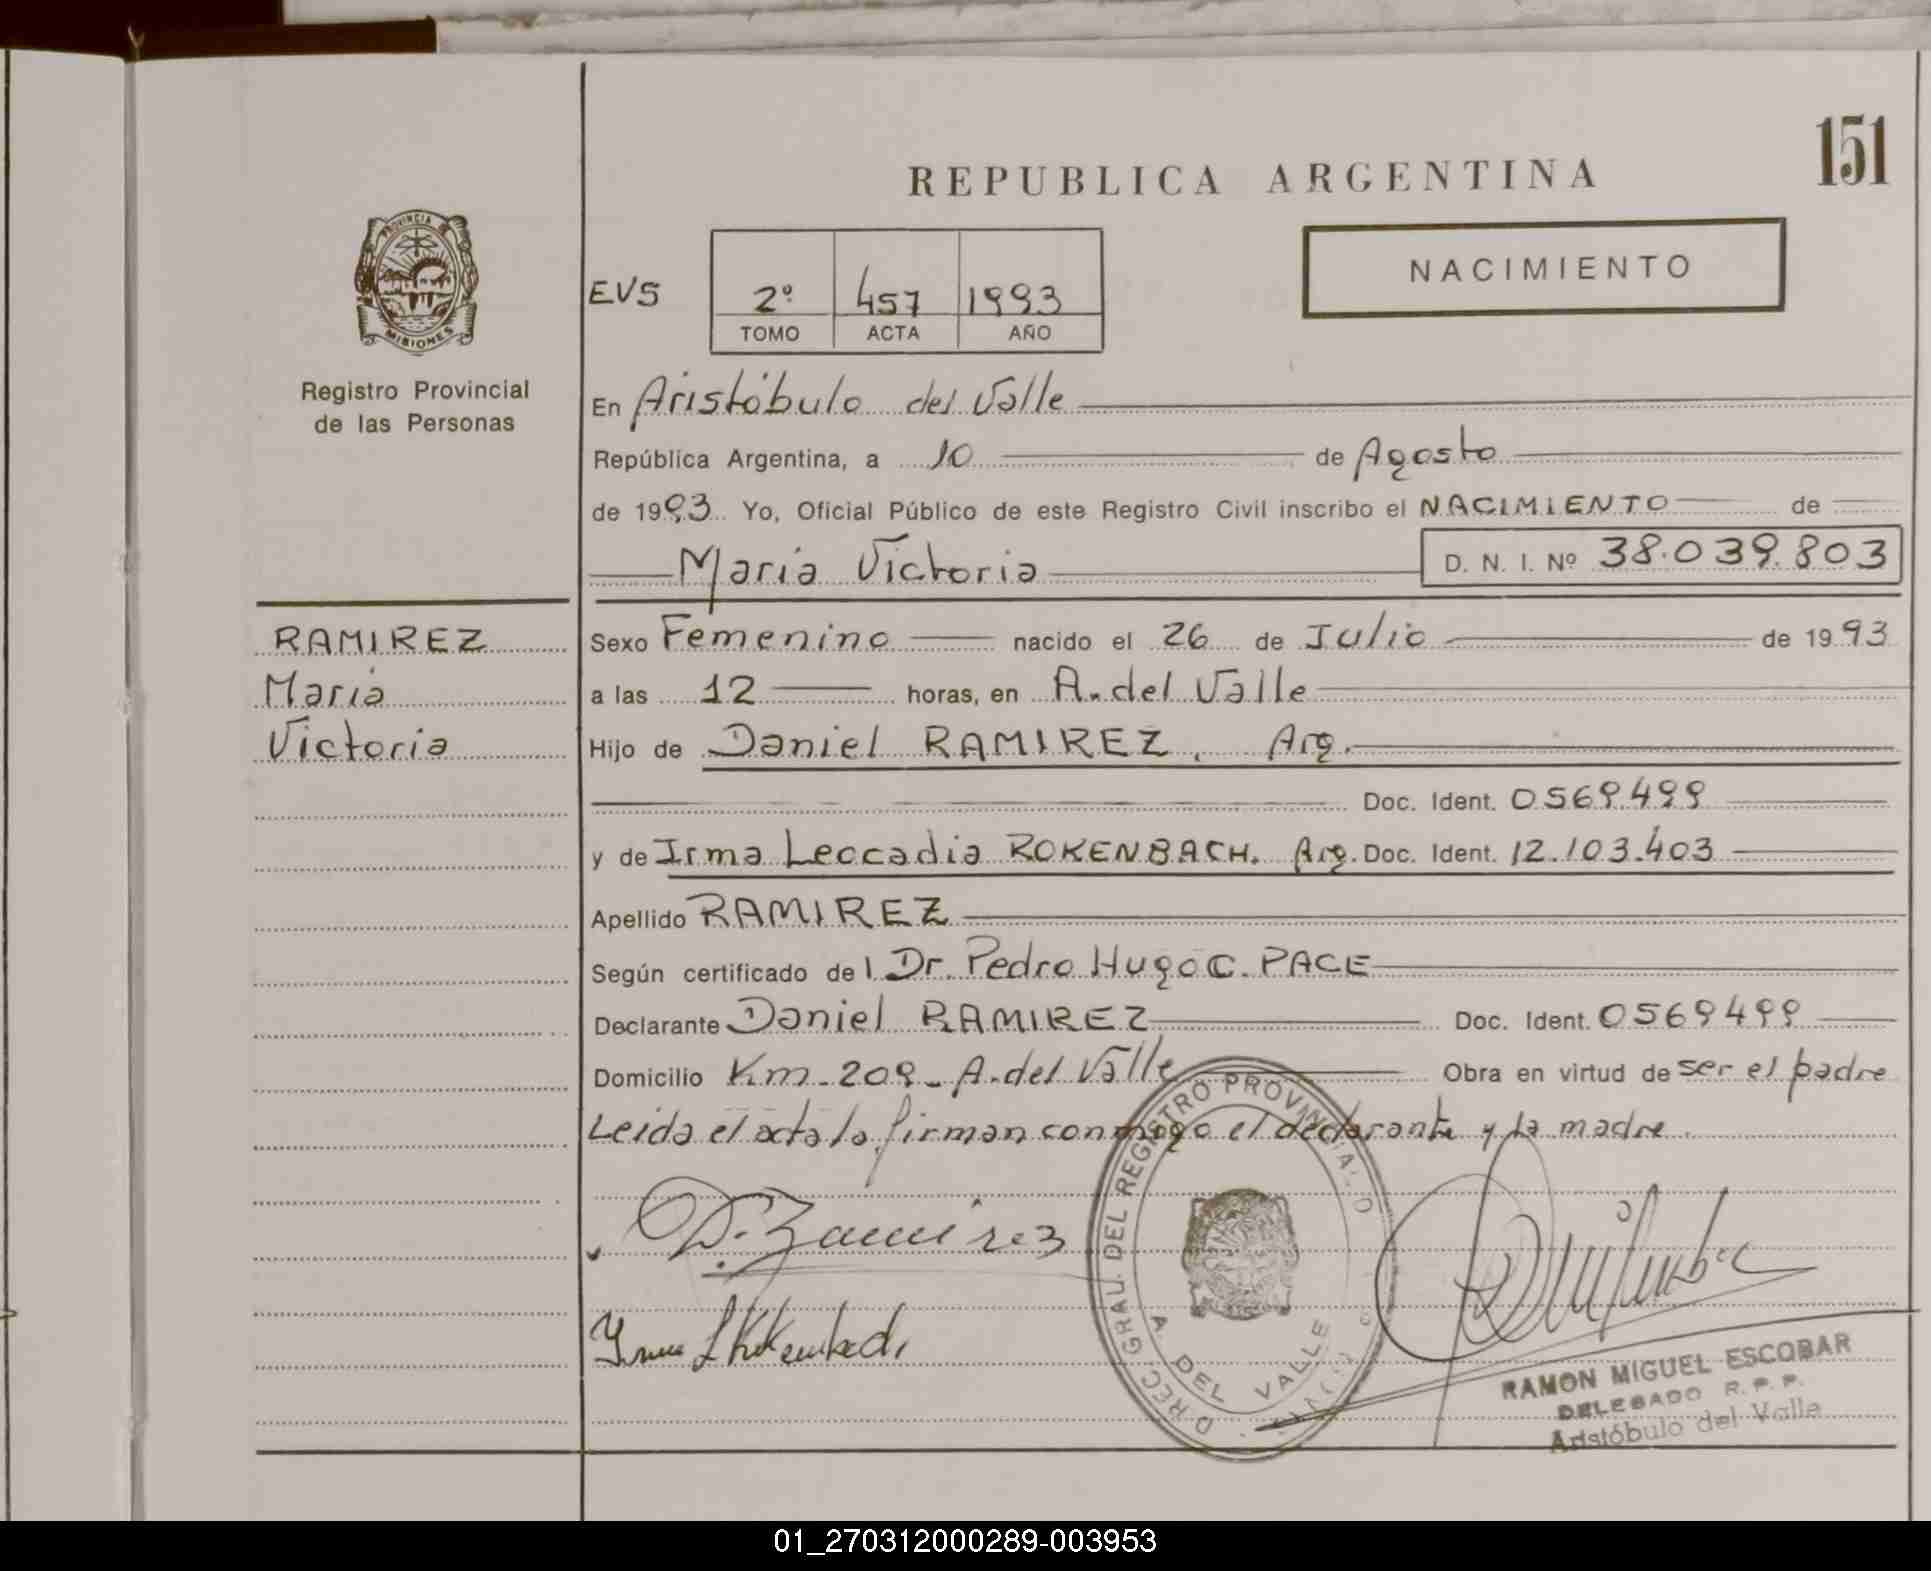 151
REPUBLICA ARGENTINA
PROVINCIA DE
MISIONES
Registro Provincial
de las Personas
NACIMIENTO
EVS
2º 457 1993
TOMO ACTA AÑO
En Aristóbulo del Valle
República Argentina, a 10 de Agosto
de 1993 Yo, Oficial Público de este Registro Civil inscribo el NACIMIENTO de
Maria Victoria D. N. I. Nº 38.039.803
RAMIREZ
Maria
Victoria
Sexo Femenino nacido el 26 de Julio de 1993
a las 12 horas, en A. del Valle
Hijo de Daniel RAMIREZ, Arg.
Doc. Ident. 0569499
y de Irma Leocadia ROKENBACH. Arg. Doc. Ident. 12.103.403
Apellido RAMIREZ
Según certificado del Dr. Pedro Hugo C. PACE
Declarante Daniel RAMIREZ Doc. Ident. 0569499
Domicilio Km. 209 - A. del Valle Obra en virtud de ser el padre
Leida el acta la firman conmigo el declarante y la madre.
D. Ramirez
DIREC. GRAL. DEL REGISTRO PROVINCIAL D
A. DEL VALLE
RAMON MIGUEL ESCOBAR
DELEGADO R. P. P.
Aristóbulo del Valle
01_270312000289-003953